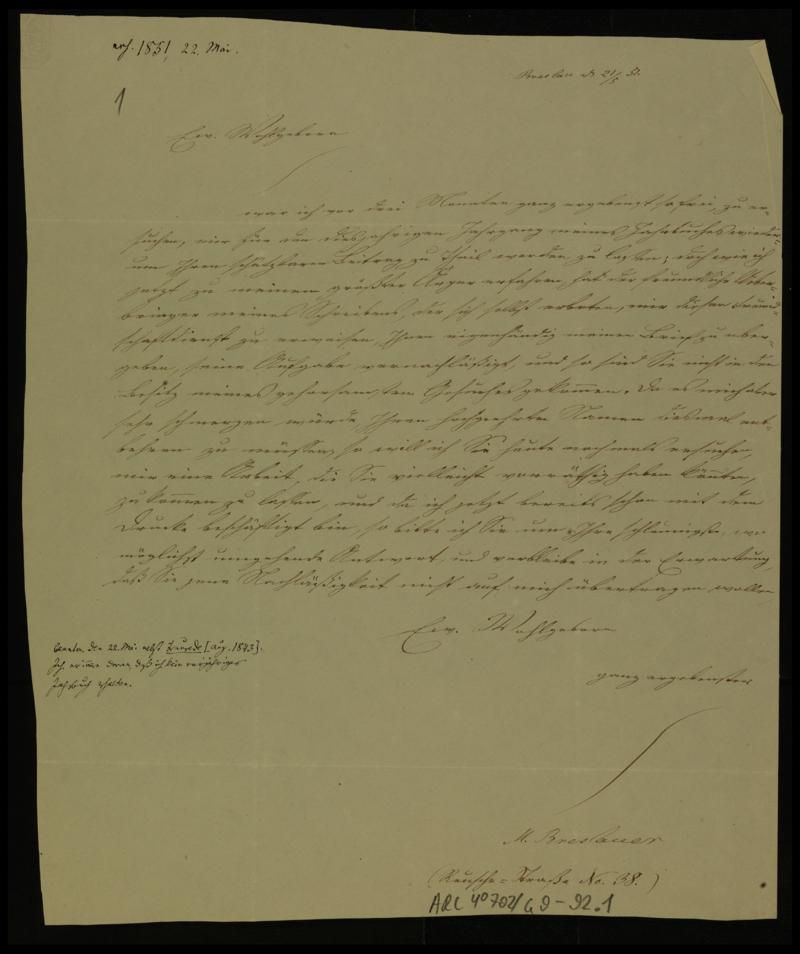 erh. 1851, 22. Mai.
Breslau d. 21/5 51.
1
Ew. Wohlgeboren
war ich vor drei Monaten ganz ergebenst so frei, zu er-
suchen, mir für den diesjährigen Jahrgang meines Jahrbuches wieder-
um Ihren schätzbaren Beitrag zu Theil werden zu lassen; doch wie ich
jetzt zu meinem größten Ärger erfahren, hat der freundliche Ueber-
bringer meines Schreibens, der sich selbst erboten, mir diesen Freund-
schaftsdienst zu erweisen, Ihnen eigenhändig meinen Brief zu über-
geben, seine Aufgabe vernachläßigt, und so sind Sie nicht in den
Besitz meines gehorsamsten Gesuches gekommen. Da es mich aber
sehr schmerzen würde Ihren hochgeehrten Namen diesmal ent-
behren zu müssen, so will ich Sie heute nochmals ersuchen,
mir eine Arbeit, die Sie vielleicht vorräthig haben könnten,
zukommen zu lassen, und da ich jetzt bereits schon mit dem
Drucke beschäftigt bin, so bitte ich Sie um Ihre schleunigste, wo
möglichst umgehende Antwort, und verbleibe in der Erwartung,
daß Sie jene Nachläßigkeit nicht auf mich übertragen wollen
Ew. Wohlgeboren
ganz ergebenster
den 22. Mai nebst [Aug. 1843].
Ich daran, daß ich kein
Jahrbuch erhalten.
M. Breslauer
(Reusche-Straße No. 38.)
ARC 4º 792/G 9-92.1